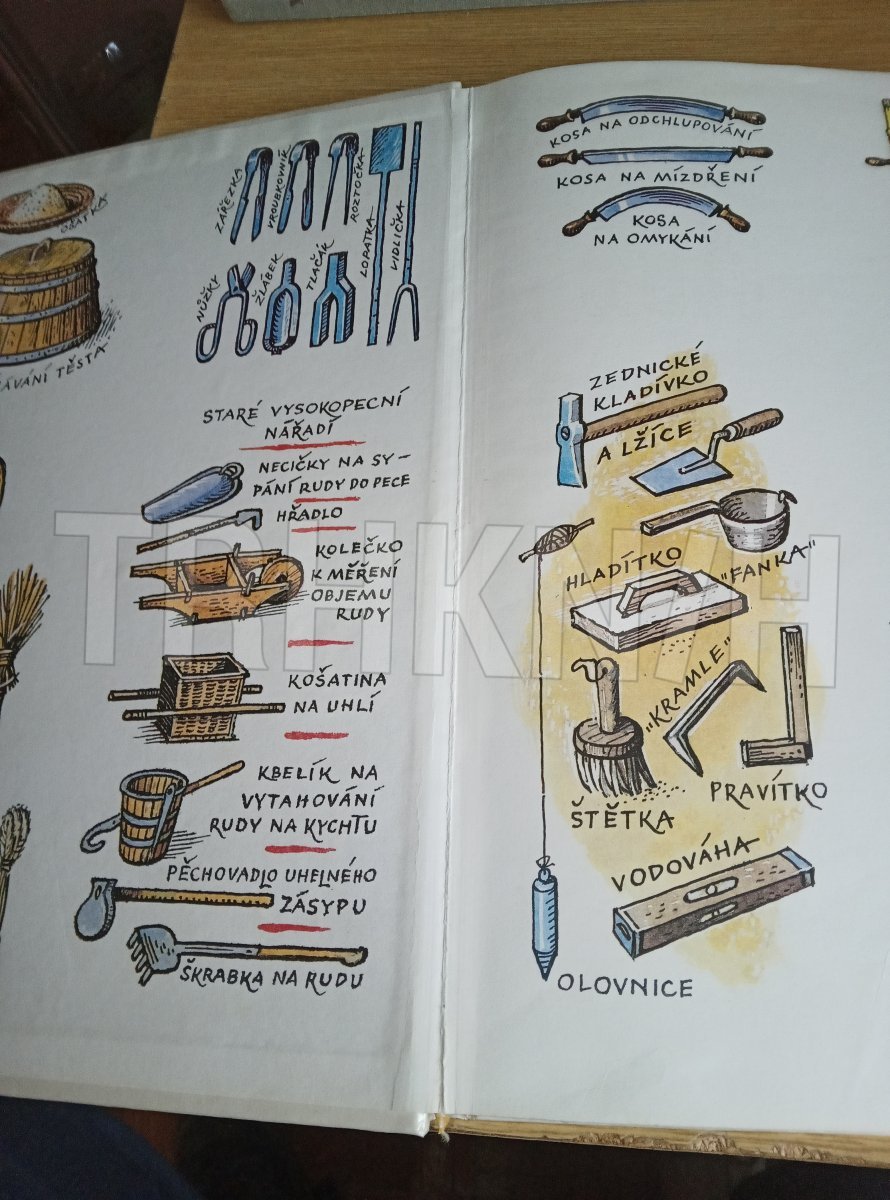 OŠATKA
ÁVÁNÍ TĚSTA
ZÁŘEZKA
VROUBKOVNÍK
ROZTOČKA
LOPATKA
VIDLIČKA
NŮŽKY
ŽLÁBEK
TLAČÁK
STARÉ VYSOKOPECNÍ
NÁŘADÍ
NECIČKY NA SY-
PÁNÍ RUDY DO PECE
HŘADLO
KOLEČKO
K MĚŘENÍ
OBJEMU
RUDY
KOŠATINA
NA UHLÍ
KBELÍK NA
VYTAHOVÁNÍ
RUDY NA KYCHTU
PĚCHOVADLO UHELNÉHO
ZÁSYPU
ŠKRABKA NA RUDU
KOSA NA ODCHLUPOVÁNÍ
KOSA NA MÍZDŘENÍ
KOSA
NA OMYKÁNÍ
ZEDNICKÉ
KLADÍVKO
A LŽÍCE
HLADÍTKO
"FANKA"
"KRAMLE"
ŠTĚTKA
PRAVÍTKO
VODOVÁHA
OLOVNICE